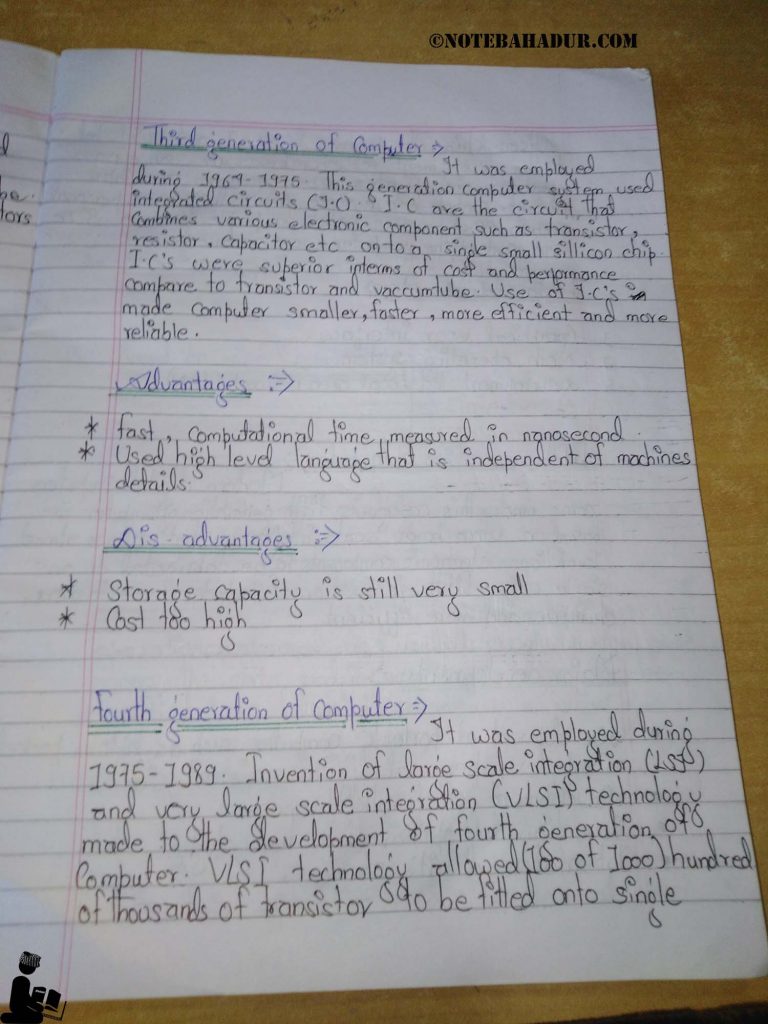 ©NOTEBAHADUR.COM
Third generation of Computer :->
It was employed
during 1964-1975. This generation computer system used
integrated circuits (I.C). I.C are the circuit that
Combines various electronic component such as transistor,
resistor, capacitor etc onto a single small sillicon chip.
I.C's were superior interms of cost and performance
compare to transistor and vaccumtube. Use of I.C's
made computer smaller, faster, more efficient and more
reliable.
Advantages :->
* fast, computational time measured in nanosecond.
* Used high level language that is independent of machines
details.
Dis advantages :->
* Storage capacity is still very small
* Cost too high
fourth generation of Computer :->
It was employed during
1975-1989. Invention of large scale integration (LSI)
and very large scale integration (VLSI) technology
made to the development of fourth generation of
Computer. VLSI technology allowed (100 of 1000) hundred
of thousands of transistor to be fitted onto single